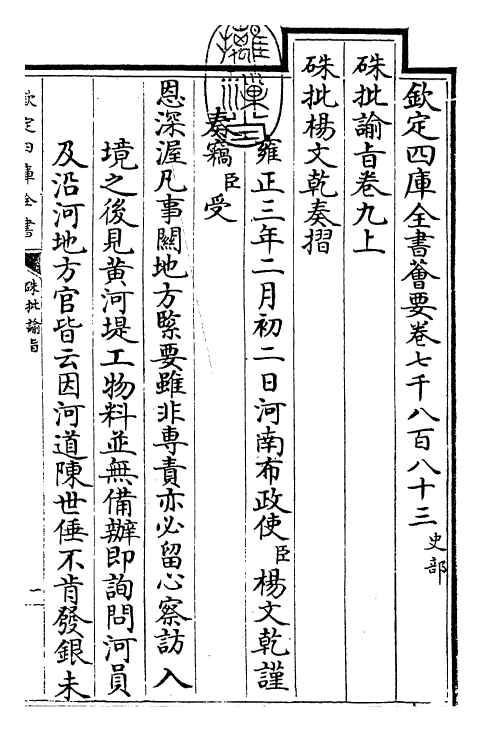 欽定四庫全書薈要卷七千八百八十三 史部
硃批諭旨卷九上
硃批楊文乾奏摺
雍正三年二月初二日河南布政使臣楊文乾謹
奏竊臣受
恩深渥凡事關地方緊要雖非專責亦必留心察訪入
境之後見黃河堤工物料並無備辦即詢問河員
及沿河地方官皆云因河道陳世倕不肯發銀未
欽定四庫全書
硃批諭旨
一